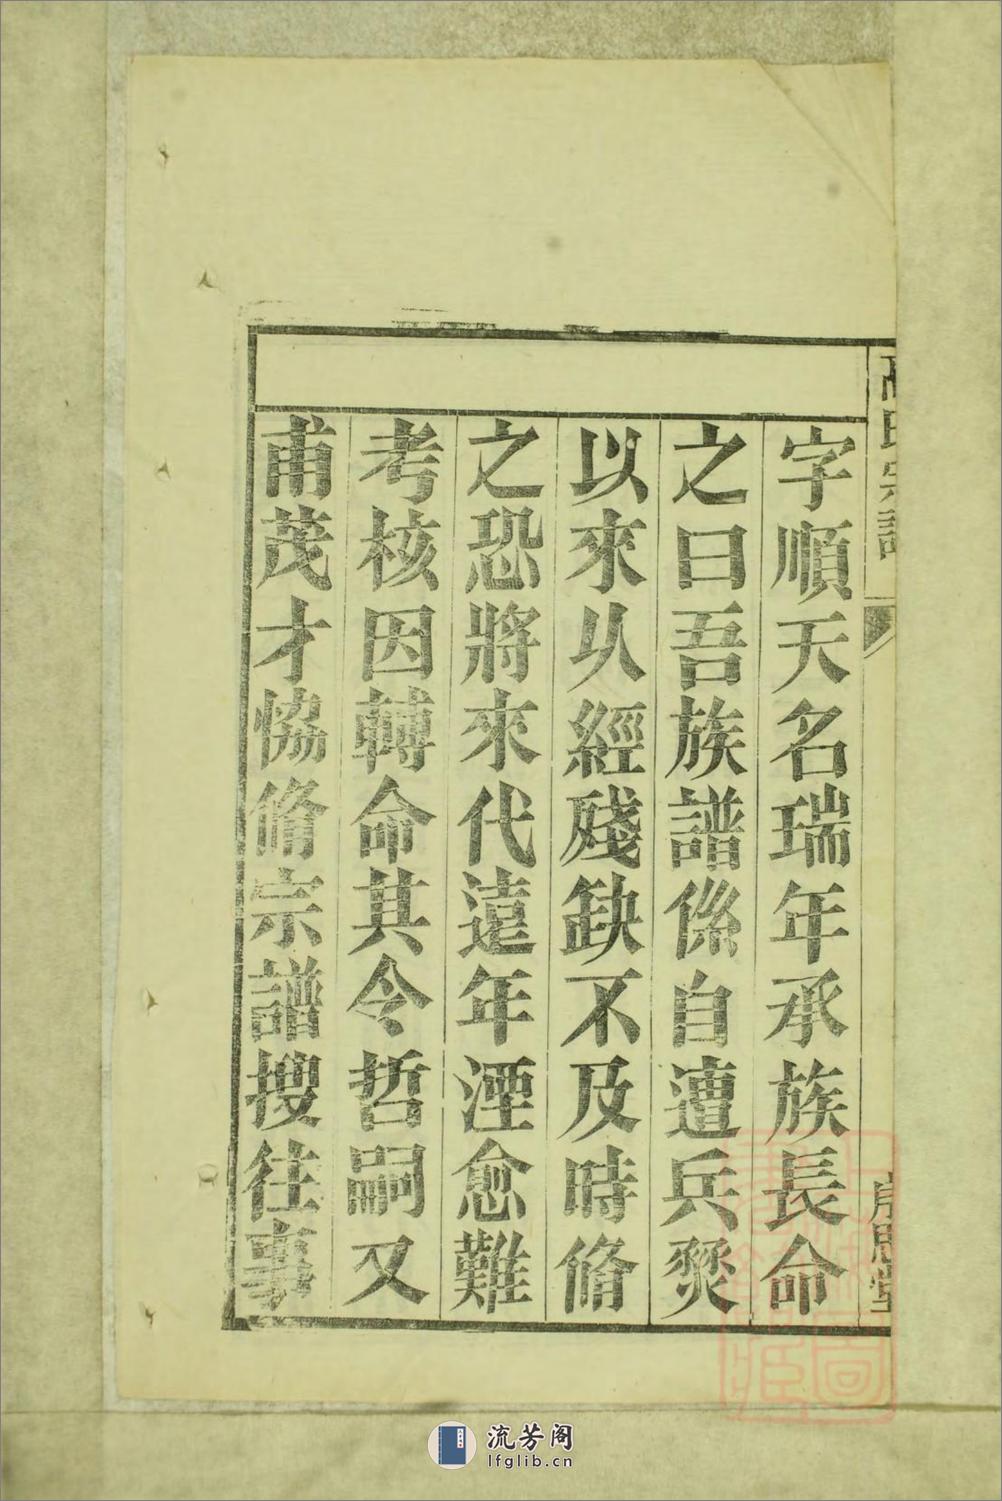 字順天名瑞年承族長命
之曰吾族譜係自遭兵燹
以來以經殘缺不及時脩
之恐將來代遠年湮愈難
考核因轉命其令哲嗣又
甫茂才恊脩宗譜搜往事
氏宗譜
思堂
流芳阁
lfglib.cn